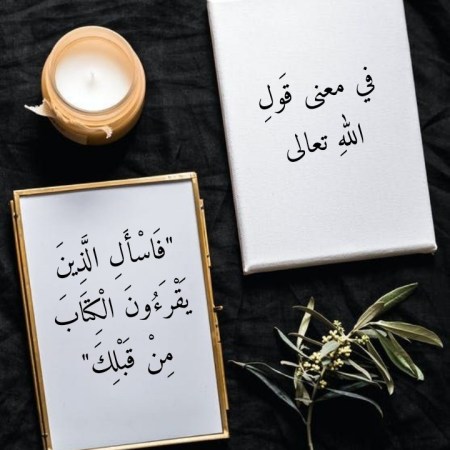 في معنى قَولِ
اللهِ تعالى
"فَاسْأَلِ الَّذِينَ
يَقْرَءُونَ الْكِتَابَ
مِنْ قَبْلِكَ"